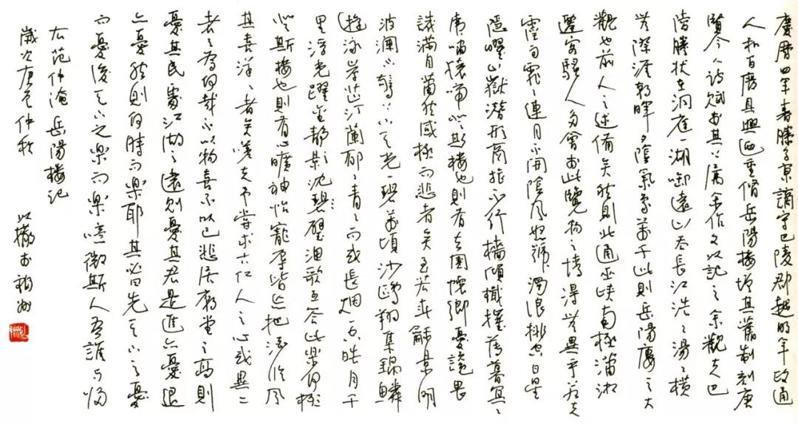 慶曆四年春滕子京謫守巴陵郡越明年政通
人和百廢具興迺重修岳陽樓增其舊制刻唐
賢今人詩賦於其上屬余作文以記之余觀夫巴
陵勝狀在洞庭一湖銜遠山吞長江浩浩湯湯橫
無際涯朝暉夕陰氣象萬千此則岳陽樓之大
觀也前人之述備矣然則北通巫峽南極瀟湘
遷客騷人多會於此覽物之情得無異乎若夫
霪雨霏霏連月不開陰風怒號濁浪排空日星
隱曜山嶽潛形商旅不行檣傾楫摧薄暮冥冥
虎嘯猿啼登斯樓也則有去國懷鄉憂讒畏
譏滿目蕭然感極而悲者矣至若春和景明
波瀾不驚上下天光一碧萬頃沙鷗翔集錦鱗
游泳岸芷汀蘭郁郁青青而或長煙一空皓月千
里浮光躍金靜影沈璧漁歌互答此樂何極
登斯樓也則有心曠神怡寵辱皆忘把酒臨風
其喜洋洋者矣嗟夫予嘗求古仁人之心或異二
者之為何哉不以物喜不以己悲居廟堂之高則
憂其民處江湖之遠則憂其君是進亦憂退
亦憂然則何時而樂耶其必曰先天下之憂
而憂後天下之樂而樂噫微斯人吾誰與歸
右范仲淹岳陽樓記
歲次庚子仲秋